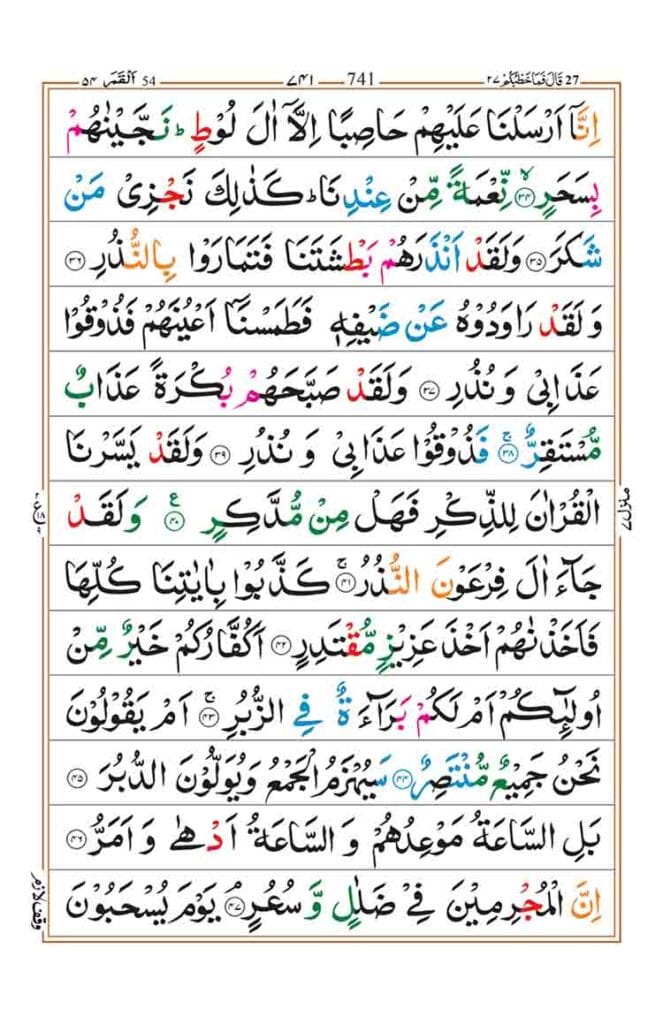 27 قَالَ فَمَا خَطْبُكُمْ ٢٧ 741 ٧٤١ 54 اَلْقَمَر ٥٤
اِنَّاۤ اَرْسَلْنَا عَلَيْهِمْ حَاصِبًا اِلَّاۤ اٰلَ لُوْطٍ ؕ نَجَّيْنٰهُمْ
بِسَحَرٍ ۙ﴿٣٤﴾ نِّعْمَةً مِّنْ عِنْدِنَا ؕ كَذٰلِكَ نَجْزِىْ مَنْ
شَكَرَ ﴿٣٥﴾ وَلَقَدْ اَنْذَرَهُمْ بَطْشَتَنَا فَتَمَارَوْا بِالنُّذُرِ ﴿٣٦﴾
وَلَقَدْ رَاوَدُوْهُ عَنْ ضَيْفِهٖ فَطَمَسْنَاۤ اَعْيُنَهُمْ فَذُوْقُوْا
عَذَابِىْ وَنُذُرِ ﴿٣٧﴾ وَلَقَدْ صَبَّحَهُمْ بُكْرَةً عَذَابٌ
مُّسْتَقِرٌّ ۚ﴿٣٨﴾ فَذُوْقُوْا عَذَابِىْ وَنُذُرِ ﴿٣٩﴾ وَلَقَدْ يَسَّرْنَا
الْقُرْاٰنَ لِلذِّكْرِ فَهَلْ مِنْ مُّدَّكِرٍ ﴿٤٠﴾ ع وَلَقَدْ
منزل ٧
جَآءَ اٰلَ فِرْعَوْنَ النُّذُرُ ۚ﴿٤١﴾ كَذَّبُوْا بِاٰيٰتِنَا كُلِّهَا
فَاَخَذْنٰهُمْ اَخْذَ عَزِيْزٍ مُّقْتَدِرٍ ﴿٤٢﴾ اَكُفَّارُكُمْ خَيْرٌ مِّنْ
اُولٰٓئِكُمْ اَمْ لَكُمْ بَرَآءَةٌ فِى الزُّبُرِ ۚ﴿٤٣﴾ اَمْ يَقُوْلُوْنَ
نَحْنُ جَمِيْعٌ مُّنْتَصِرٌ ﴿٤٤﴾ سَيُهْزَمُ الْجَمْعُ وَيُوَلُّوْنَ الدُّبُرَ ﴿٤٥﴾
بَلِ السَّاعَةُ مَوْعِدُهُمْ وَالسَّاعَةُ اَدْهٰى وَاَمَرُّ ﴿٤٦﴾
اِنَّ الْمُجْرِمِيْنَ فِىْ ضَلٰلٍ وَّسُعُرٍ ۘ﴿٤٧﴾ يَوْمَ يُسْحَبُوْنَ
وقف لازم